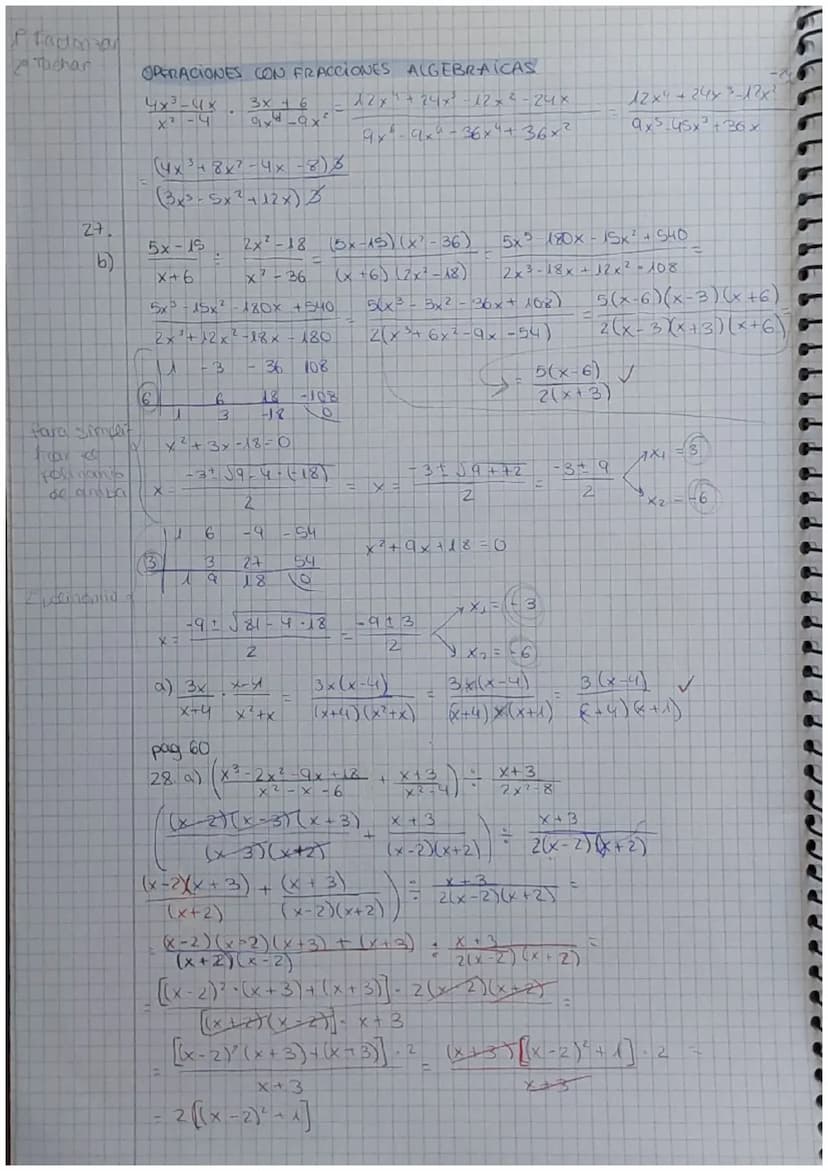 1º Factorizar
2º Tachar
OPERACIONES CON FRACCIONES ALGEBRAICAS
(4x³-4x)/(x²-4) · (3x+6)/(9x⁴-9x²) = (12x⁴+24x³-12x²-24x)/(9x⁶-9x⁴-36x⁴+36x²) = (12x⁴+24x³-12x²-24)/(9x⁵-45x³+36x)
= ((4x³+8x²-4x-8)3)/((3x⁵-5x²+12x)3)
27.
b) (5x-15)/(x+6) : (2x²-18)/(x²-36) = ((5x-15)(x²-36))/((x+6)(2x²-18)) = (5x³-180x-15x²+540)/(2x³-18x+12x²-108) =
(5x³-15x²-180x+540)/(2x³+12x²-18x-180) = (5(x³-3x²-36x+108))/(2(x³+6x²-9x-54)) = (5(x-6)(x-3)(x+6))/(2(x-3)(x+3)(x+6)) =
1 -3 -36 108
6 6 18 -108
1 3 -18 0
= (5(x-6))/(2(x+3)) ✓
x²+3x-18=0
x = (-3±√(9-4·(-18)))/2 = x = (-3±√(9+72))/2 = (-3±9)/2 x₁=3
x₂=-6
1 6 -9 -54
3 3 27 54
1 9 18 0
x²+9x+18=0
x = (-9±√(81-4·18))/2 = (-9±3)/2 x₁=-3
x₂=-6
a) 3x/(x+4) · (x-4)/(x²+x) = (3x(x-4))/((x+4)(x²+x)) = (3x(x-4))/((x+4)x(x+1)) = (3(x-4))/((x+4)(x+1)) ✓
pag 60
28. a) ((x³-2x²-9x+18)/(x²-x-6) + (x+3)/(x²-4)) ÷ (x+3)/(2x²-8)
(((x-2)(x-3)(x+3))/((x-3)(x+2)) + (x+3)/((x-2)(x+2))) ÷ (x+3)/(2(x-2)(x+2))
((x-2)(x+3))/(x+2) + (x+3)/((x-2)(x+2))) ÷ (x+3)/(2(x-2)(x+2)) =
= ((x-2)(x-2)(x+3)+(x+3))/((x+2)(x-2)) ÷ (x+3)/(2(x-2)(x+2)) =
= ([(x-2)²·(x+3)+(x+3)]·2(x-2)(x+2))/([(x+2)(x-2)]·x+3) =
= ([(x-2)²(x+3)+(x+3)]·2)/(x+3) = ((x+3)[(x-2)²+1]·2)/(x+3) =
= 2[(x-2)²+1]